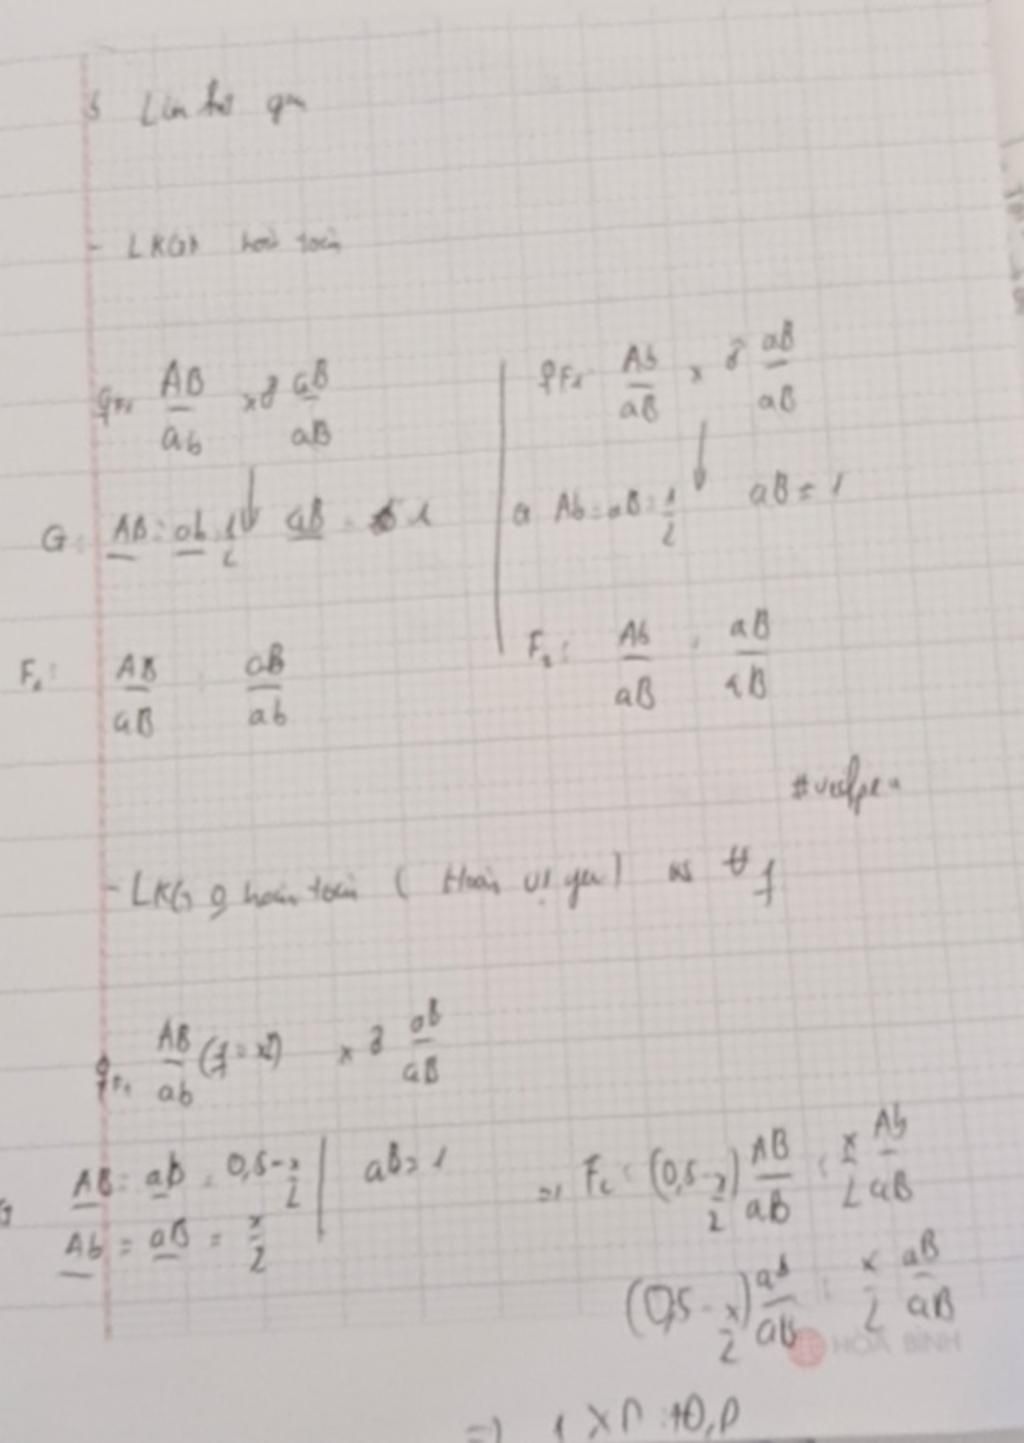 Liên kết gen
- LKGN hoàn toàn
♀F₁ AB/ab × ♂ aB/aB
G: AB = ab = 1/2 aB = 1
F₂: AB/aB : aB/ab
♀F₁ Ab/aB × ♂ aB/aB
G Ab = aB = 1/2 aB = 1
F₂: Ab/aB : aB/aB
- LKG 0 hoàn toàn ( Hoán vị gen) vs ∀ f
♀F₁ AB/ab (f = x) × ♂ aB/aB
G AB = ab = 0,5 - x/2 | aB = 1
Ab = aB = x/2
=> F₂ : (0,5 - x/2) AB/aB : x/2 Ab/aB
(0,5 - x/2) ab/aB : x/2 aB/aB
HOÀ BÌNH